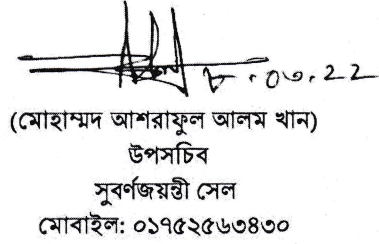 ৮.০৩.২২
(মোহাম্মদ আশরাফুল আলম খান)
উপসচিব
সুবর্ণজয়ন্তী সেল
মোবাইল: ০১৭৫২৫৬৩৪৩০